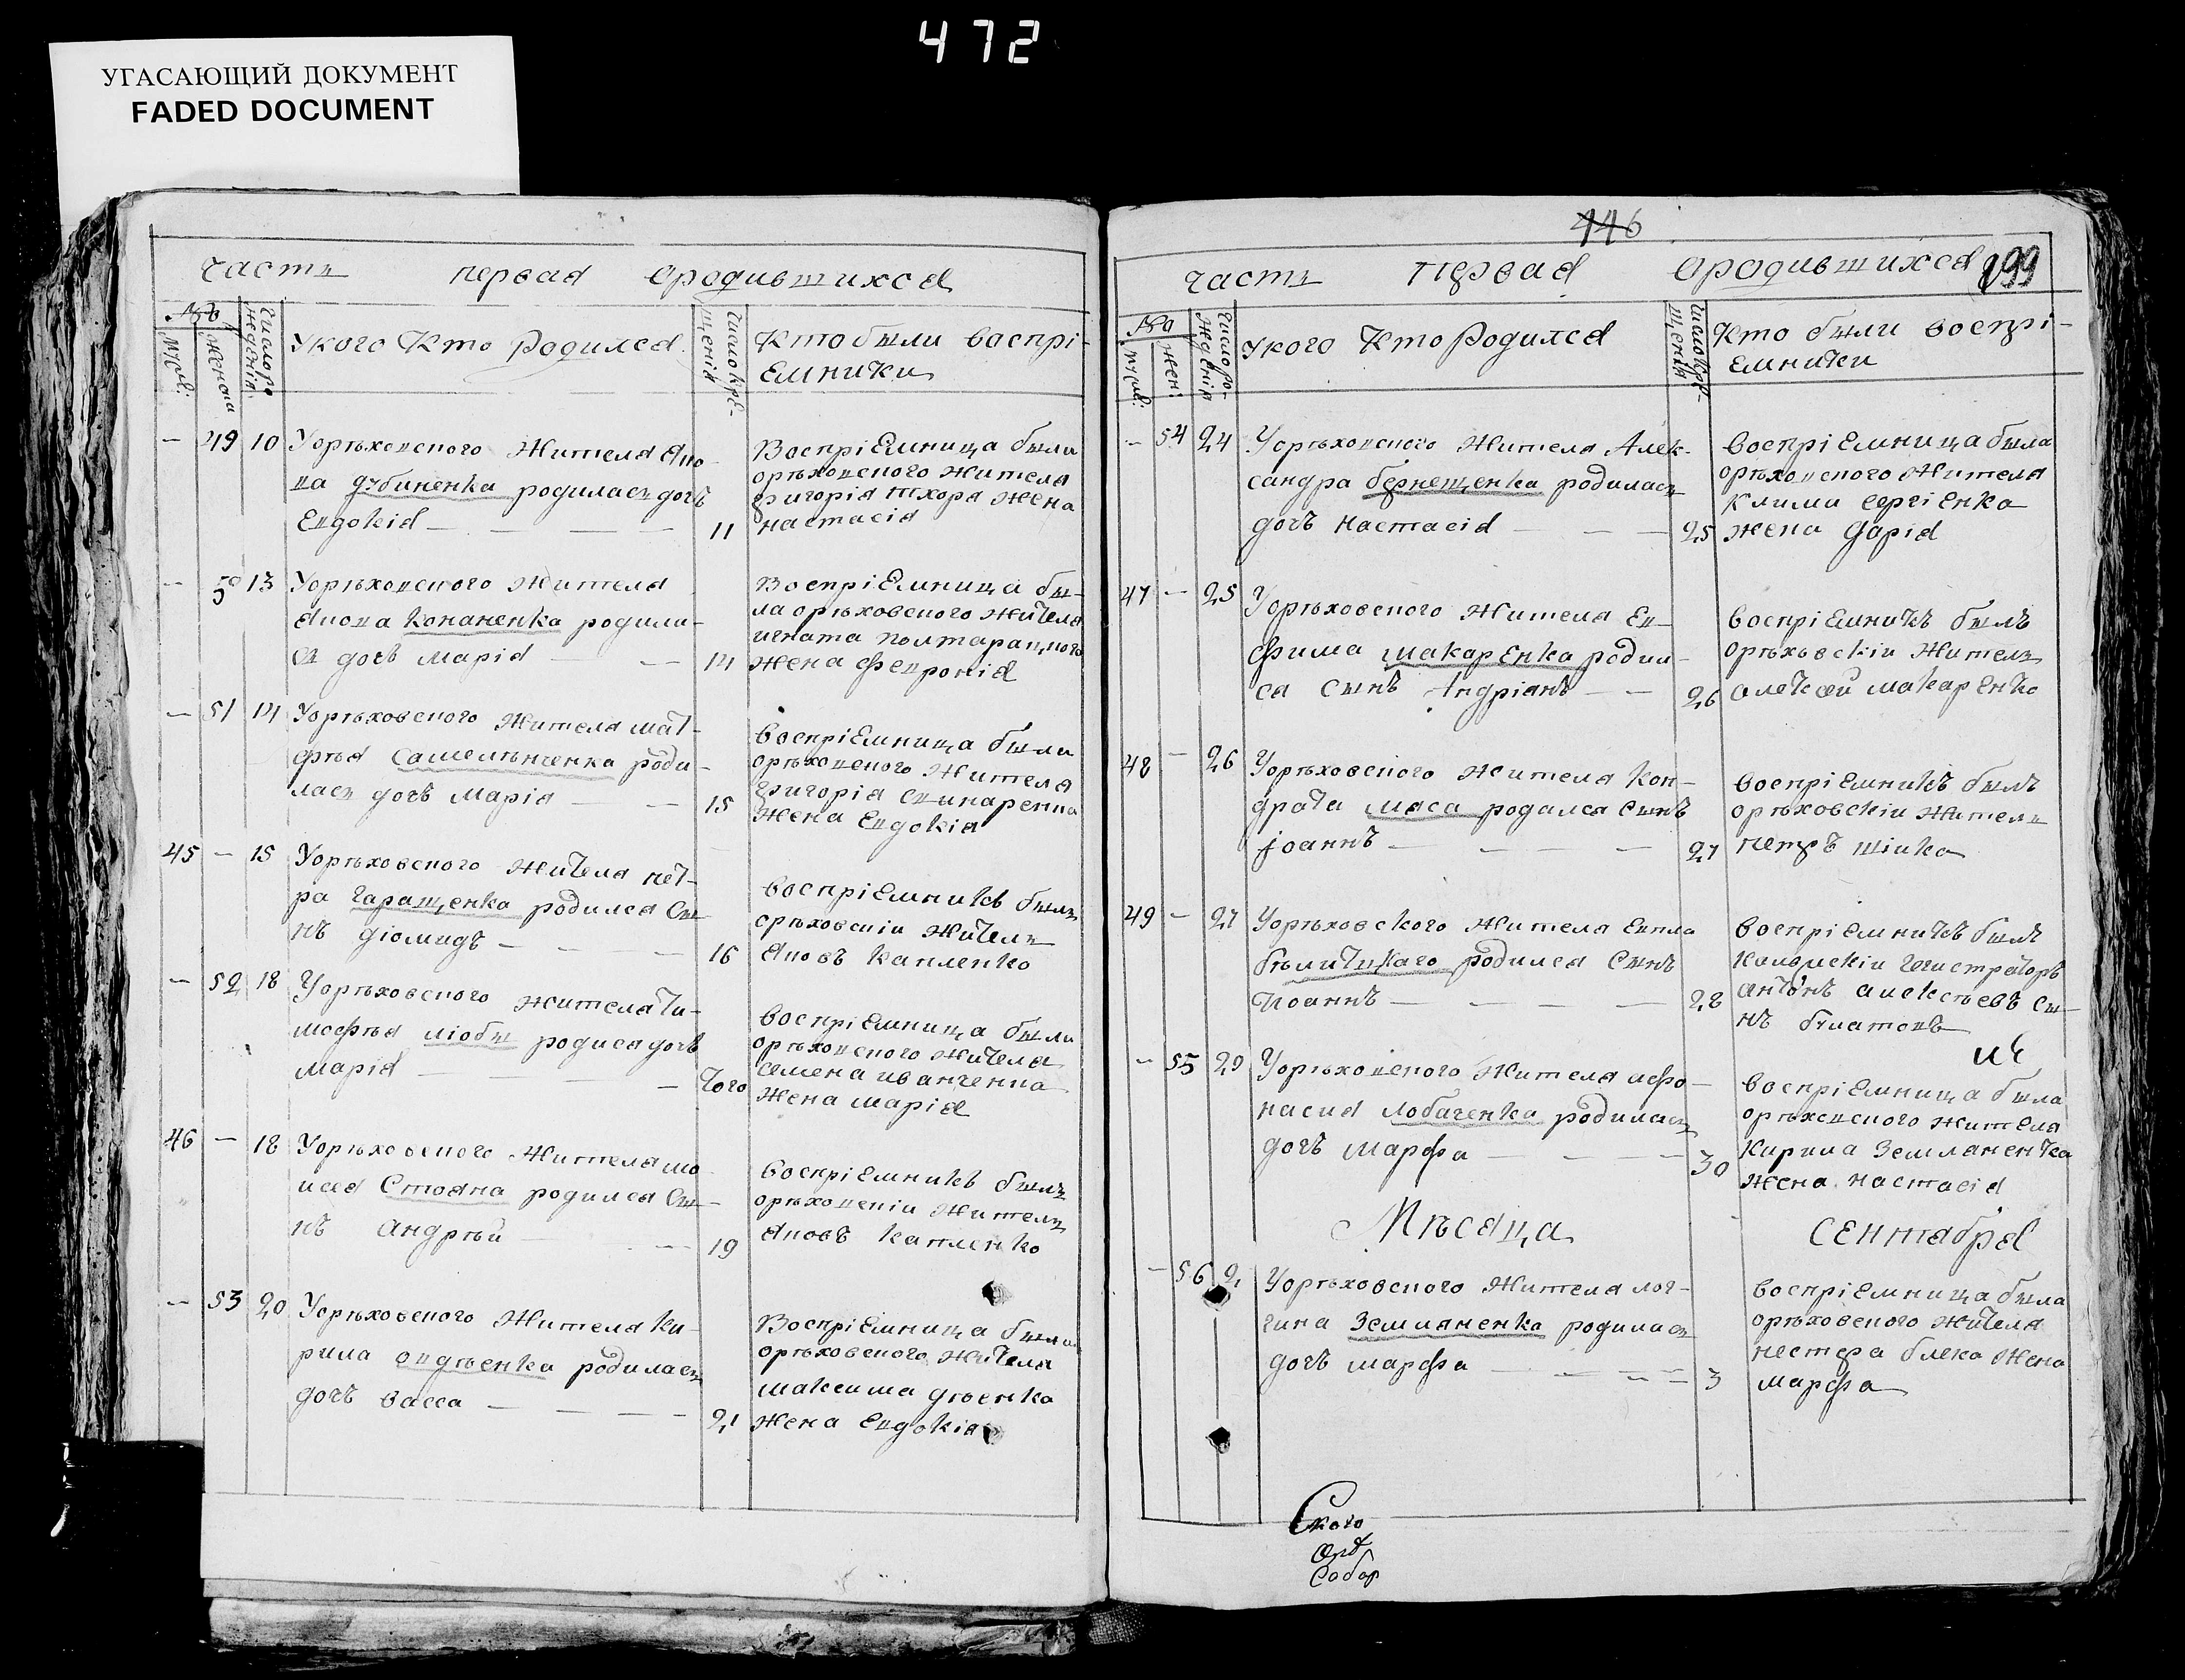 472
УГАСАЮЩИЙ ДОКУМЕНТ
FADED DOCUMENT
часть первая ородившихся
№
муж: женска
число рождения
Укого Кто Родился
число крещенія
Кто были воспрі-
емники
— 49 10 Уорѣховского Жителя Яко-
ва дубиненка родилась дочъ
Евдокія — 11
Воспріемница была
орѣховского жителя
григорія тхора жена
настасія
— 50 13 Уорѣховского жителя
Якова Конаненка родила-
сь дочъ марія — 14
Воспріемница бы-
ла орѣховского жителя
игната полтарацкого
жена февронія
— 51 14 Уорѣховского Жителя мат-
фѣя родилась дочъ марія — 15
воспріемница была
орѣховского жителя
григорія свинаренка
жена Евдокія
45 — 15 Уорѣховского жителя пет-
ра гаращенка родился сы-
нъ діомидъ — 16
воспріемникъ былъ
орѣховскіи житель
Яковъ Капленко
— 52 18 Уорѣховского жителя ти-
мофѣя любы родися дочъ
марія — того
воспріемница была
орѣховского жителя
семена иванченка
жена марія
46 — 18 Уорѣховского Жителя мо
исея Стояна родился сы-
нъ андрѣй — 19
воспріемникъ былъ
орѣховскіи житель
Яковъ Капленко
— 53 20 Уорѣховского Жителя Ки-
рила овдѣенка родилась
дочъ васса — 21
Воспріемница была
орѣховского жителя
максима дѣенка
жена Евдокія
446
часть первая ородившихся 299
№
муж: жен:
число рожденія
укого Кто Родился
число крещенія
Кто были воспрі-
емники
— 54 24 Уорѣховского жителя Алек-
сандра бернещенка родилась
дочъ настасія — 25
воспріемница была
орѣховского жителя
клима сергіенка
жена дарія
47 — 25 Уорѣховского жителя Ев-
фима макаренка родил-
ся сынъ Андріянъ — 26
воспріемникъ былъ
орѣховскіи житель
алексей макаренко
48 — 26 Уорѣховского жителя Кон-
драта маса родился сынъ
іоаннъ — 27
воспріемникъ былъ
орѣховскіи житель
петръ шінка
49 — 27 Уорѣховского жителя Евпла
бѣлитцкаго родился сынъ
Иоаннъ — 28
воспріемникъ былъ
регистраторъ
антонъ алексѣевъ сы-
нъ филатовъ
— 55 29 Уорѣховского жителя афо-
насия лобаченка родилась
дочъ марфа — 30
воспріемница была
орѣховского жителя
Кирила Земляненка
жена настасія
Мѣсяца Сентября
— 56 2 Уорѣховского жителя лог-
гина Земляненка родилась
дочъ марфа — 3
воспріемница была
орѣховского жителя
нестера блека жена
марфа